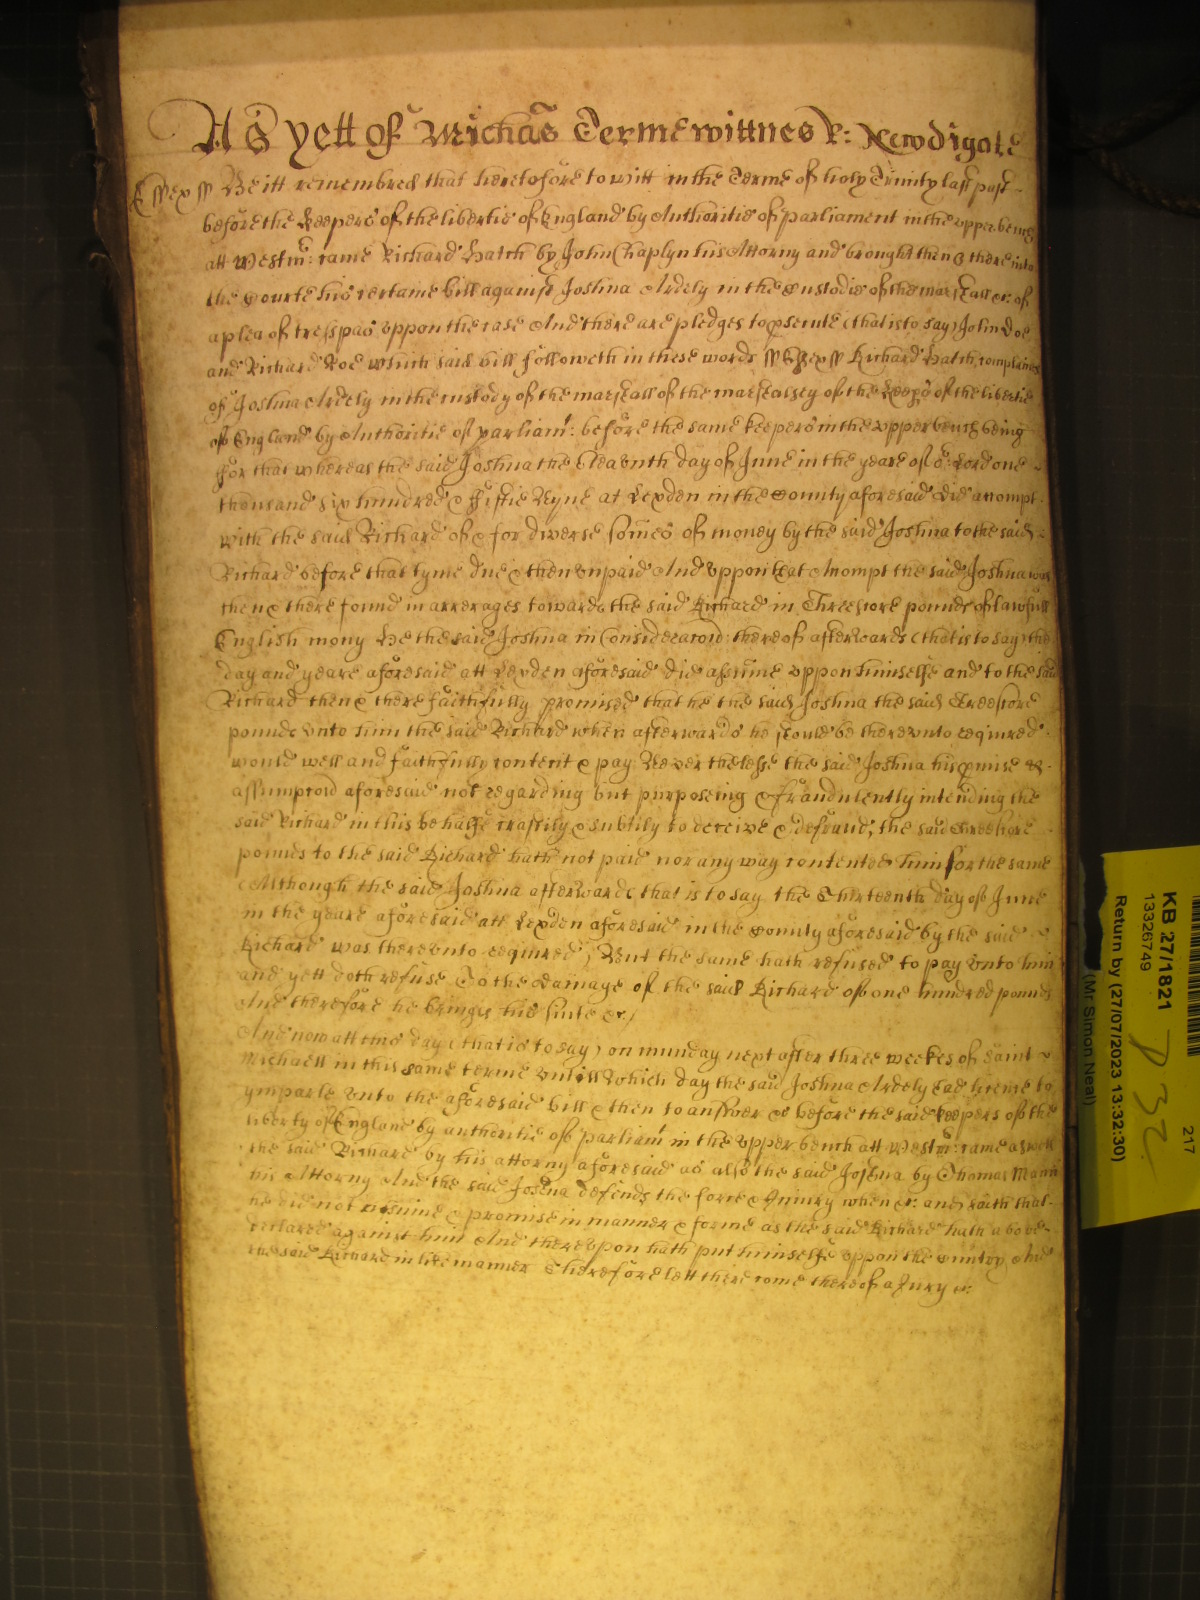 As yett of Michas Terme wittnes R: Newdigate
Essex ss Be itt remembred that heretofore to witt in the Terme of holy Trinity last past
before the Keepers of the libertie of England by Authoritie of parliament in the upper bench
att Westmr: came Richard Hatch by John Chaplyn his Attorny and brought then & there into
the Courte his certaine bill against Joshua Ardely in the Custodie of the marshall &c: of
a plea of tresspas uppon the case And there are pledges to psecute (that is to say) John Doe
and Richard Roe which said bill followeth in these words ss Essex ss Richard Hatch complaines
of Joshua Ardely in the custody of the marshall of the marshalsey of the Keeps of the libertie
of England by Authoritie of parliamt: before the same keepers in the upper bench being
for that whereas the said Joshua the Eleaventh day of June in the yeare of or: Lord one
thousand six hundred & fiftie Nyne at Lexden in the County aforesaid did accompt
with the said Richard of & for diverse somes of money by the said Joshua to the said
Richard before that tyme due & then unpaid And uppon that Accompt the said Joshua was
then & there found in arrerages towards the said Richard in Threescore pounds of lawfull
English mony He the said Joshua in Consideracoid: thereof afterwards (that is to say) the
day and yeare aforesaid att Lexden aforesaid did assume uppon himselfe and to the said
Richard then & there faithfully promised that he the said Joshua the said Threescore
pounds unto him the said Richard when afterwards he should be thereunto required
would well and faithfully content & pay Neverthelesse the said Joshua his pmise &
assumpcoid aforesaid not regarding but purposeing & fraudulently intending the
said Richard in this behalfe craftily & subtily to deceive & defraud, the said threescore
pounds to the said Richard hath not paid nor any way contented him for the same
(Although the said Joshua afterwards that is to say the Thirteenth day of June
in the yeare aforesaid att Lexden aforesaid in the County aforesaid by the said
Richard was thereunto required) But the same hath refused to pay unto him
and yett doth refuse To the damage of the said Richard of one hundred pounds
And therefore he bringes his suite &c./
And now att this day (that is to say) on munday next after three weekes of Saint
Michaell in this same terme untill which day the said Joshua Ardely had licence to
ymparle unto the aforesaid bill & then to answer &c before the said keepers of the
liberty of England by authoritie of parliamt in the upper bench att Westmr: came aswell
the said Richard by his attorny aforesaid as also the said Joshua by Thomas Mann
his Attorny And the said Joshua defends the force & Iniury when &c: and saith that
he did not assume & promise in manner & forme as the said Richard hath above
declared against him And thereupon hath put himselfe uppon the Cuntry And
the said Richard in like manner Therefore lett there come thereof a Jury &c:
KB 27/1821
13326749
Return by (27/07/2023 13:32:30)
(Mr Simon Neal)
217
P 32